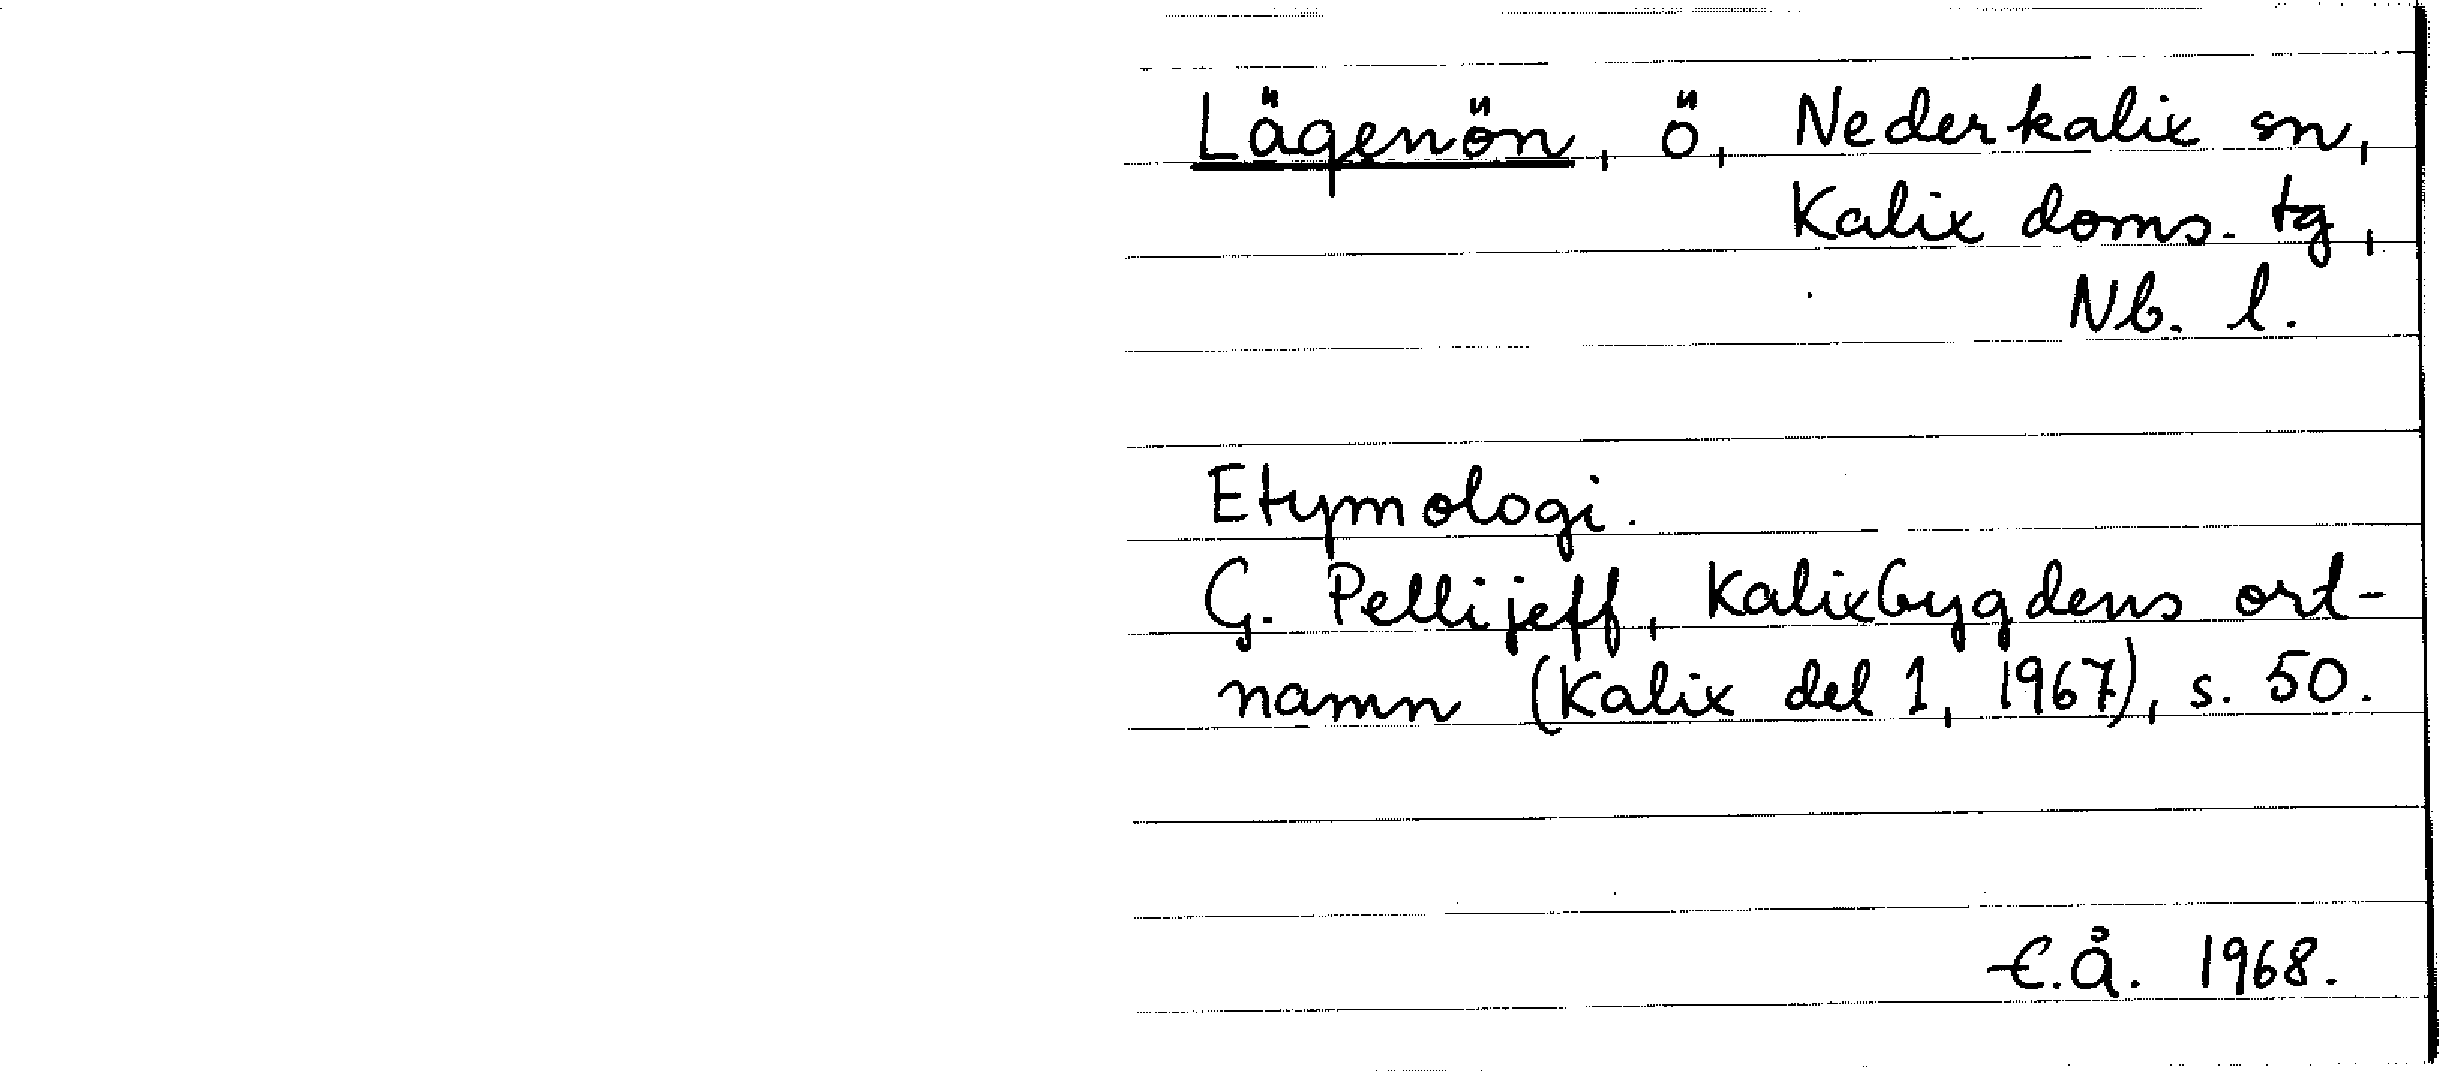 Lägenön, ö, Nederkalix sn,
Kalix doms. tg,
Nb. l.
Etymologi.
G. Pellijeff, Kalixbygdens ort-
namn (Kalix del 1, 1967), s. 50.
E.Å. 1968.